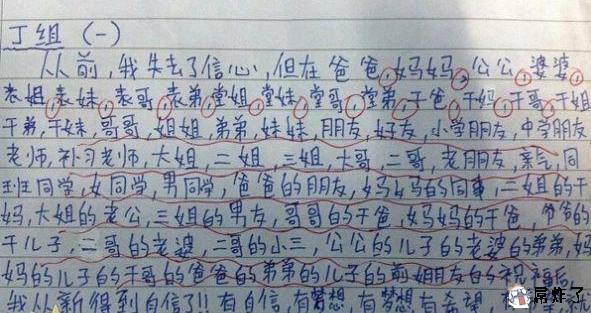 丁组 (一)
从前,我失去了信心,但在爸爸,妈妈,公公,婆婆,
表姐,表妹,表哥,表弟,堂姐,堂妹,堂哥,堂弟,干爸,干妈,干哥,干姐
干弟,干妹,哥哥,姐姐,弟弟,妹妹,朋友,好友,小学朋友,中学朋友
老师,补习老师,大姐,二姐,三姐,大哥,二哥,老朋友,亲气,同
班同学,女同学,男同学,爸爸的朋友,妈妈的同事,二姐的干
妈,大姐的老公,三姐的男友,哥哥的干爸,妈妈的干爸,爷爷的
干儿子,二哥的老婆,二哥的小三,公公的儿子的老婆的弟弟,妈
妈的儿子的干哥的爸爸的弟弟的儿子的前女朋友的祝福后,
我从新得到自信了!!有自信,有梦想,有梦想,有希望,
屌炸了